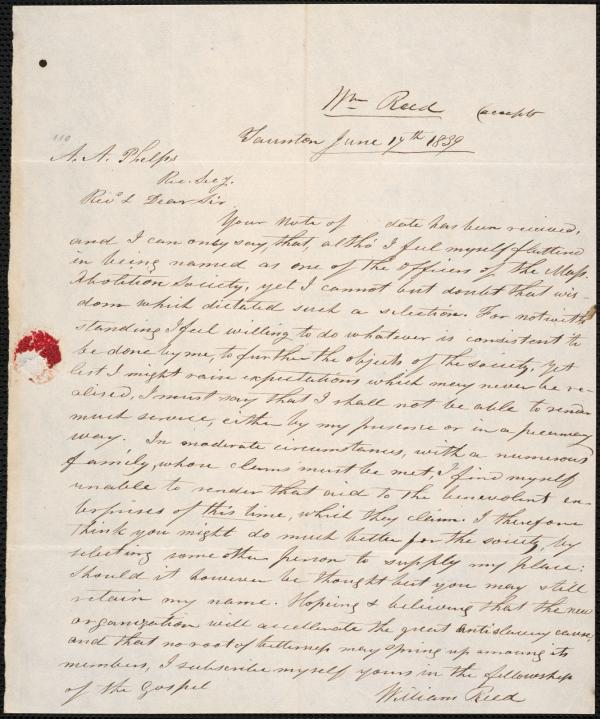 Wm Reed accepts
110
Taunton June 17th 1839
A. A. Phelps
Rec. Secy.
Revd & Dear Sir
Your Note of date has been received,
and I can only say, that, altho' I feel myself flattered
in being named as one of the officers of the Mass.
Abolition Society, yet I cannot but doubt that wis-
dom which dictated such a selection. For notwith
standing I feel willing to do whatever is consistent to
be done by me, to further the objects of the society, yet
lest I might raise expectations which may never be re-
alised, I must say that I shall not be able to render
much service, either by my presence or in a pecuniary
way. In moderate circumstances, with a numerous
family, whose claims must be met, I find myself
unable to render that aid to the benevolent en-
terprises of this time, which they claim. I therefore
think you might do much better for the society, by
selecting some other person to supply my place:
should it however be thought but you may still
retain my name. Hoping & believing that the new
organization will accellerate the great antislavery cause,
and that no root of bitterness may spring up among its
members, I subscribe myself yours in the fellowship
of the Gospel
William Reed